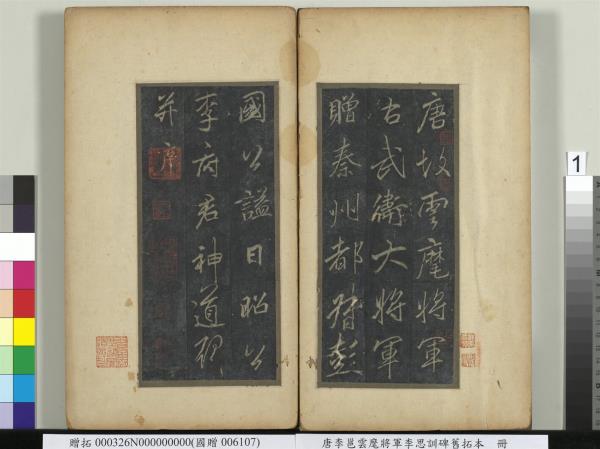 唐故雲麾將軍
右武衛大將軍
贈秦州都督彭
國公謚曰昭公
李府君神道碑
并序
1
贈拓 000326N000000000(國贈 006107)
唐李邕雲麾將軍李思訓碑舊拓本 冊